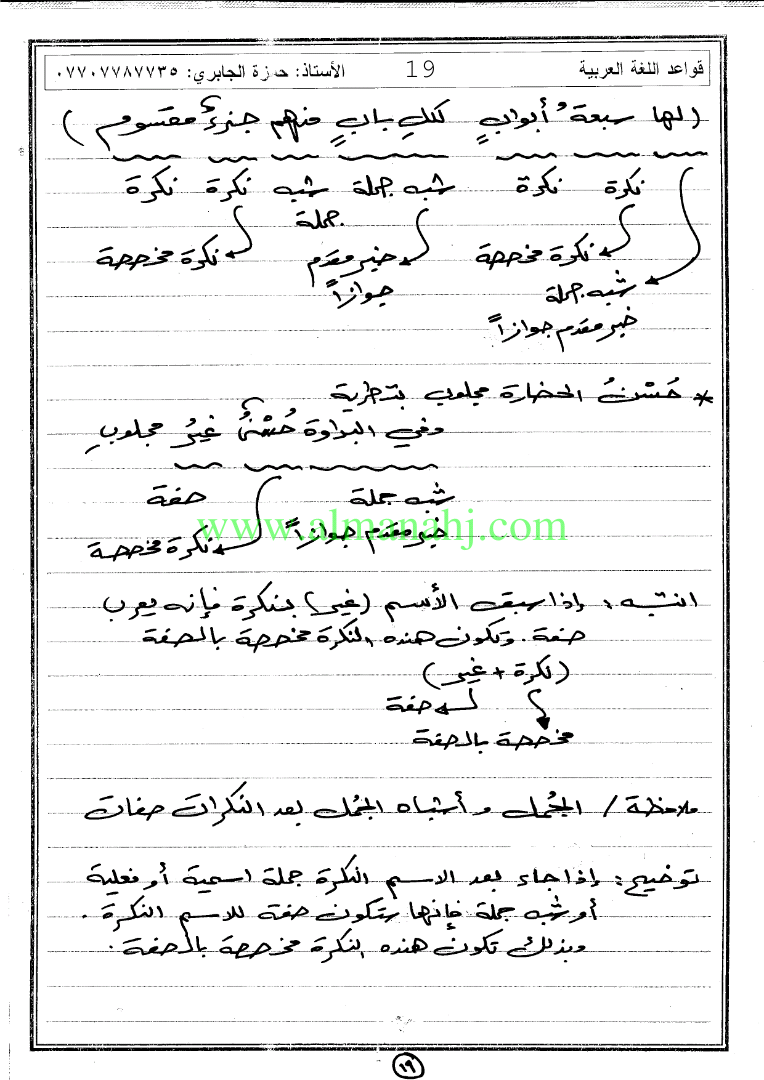 قواعد اللغة العربية 19 الأستاذ: حمزة الجابري: ٠٧٧٠٧٧٨٧٧٣٥
(لها سبعةُ أبوابٍ لكلِ بابٍ منهم جزءٌ مقسوم)
نكرة نكرة شبه جملة شبه نكرة نكرة
جملة
نكرة مخصصة خبر مقدم نكرة مخصصة
شبه جملة جوازاً
خبر مقدم جوازاً
* حُسْنُ الحضارة مجلوب بتطرية
وفي البداوة حُسْنٌ غيرُ مجلوبِ
شبه جملة صفة
www.almanahj.com
خبر مقدم جوازاً نكرة مخصصة
انتبه: إذا سبق الأسم (غير) بنكرة فإنه يعرب
صفة. وتكون هذه النكرة مخصصة بالصفة
(نكرة + غير)
صفة
مخصصة بالصفة
ملاحظة / الجُمل و أشباه الجُمل بعد النكرات صفات
توضيح: إذا جاء بعد الاسم النكرة جملة اسمية أو فعلية
أو شبه جملة فإنها ستكون صفة للاسم النكرة.
وبذلك تكون هذه النكرة مخصصة بالصفة.
١٩